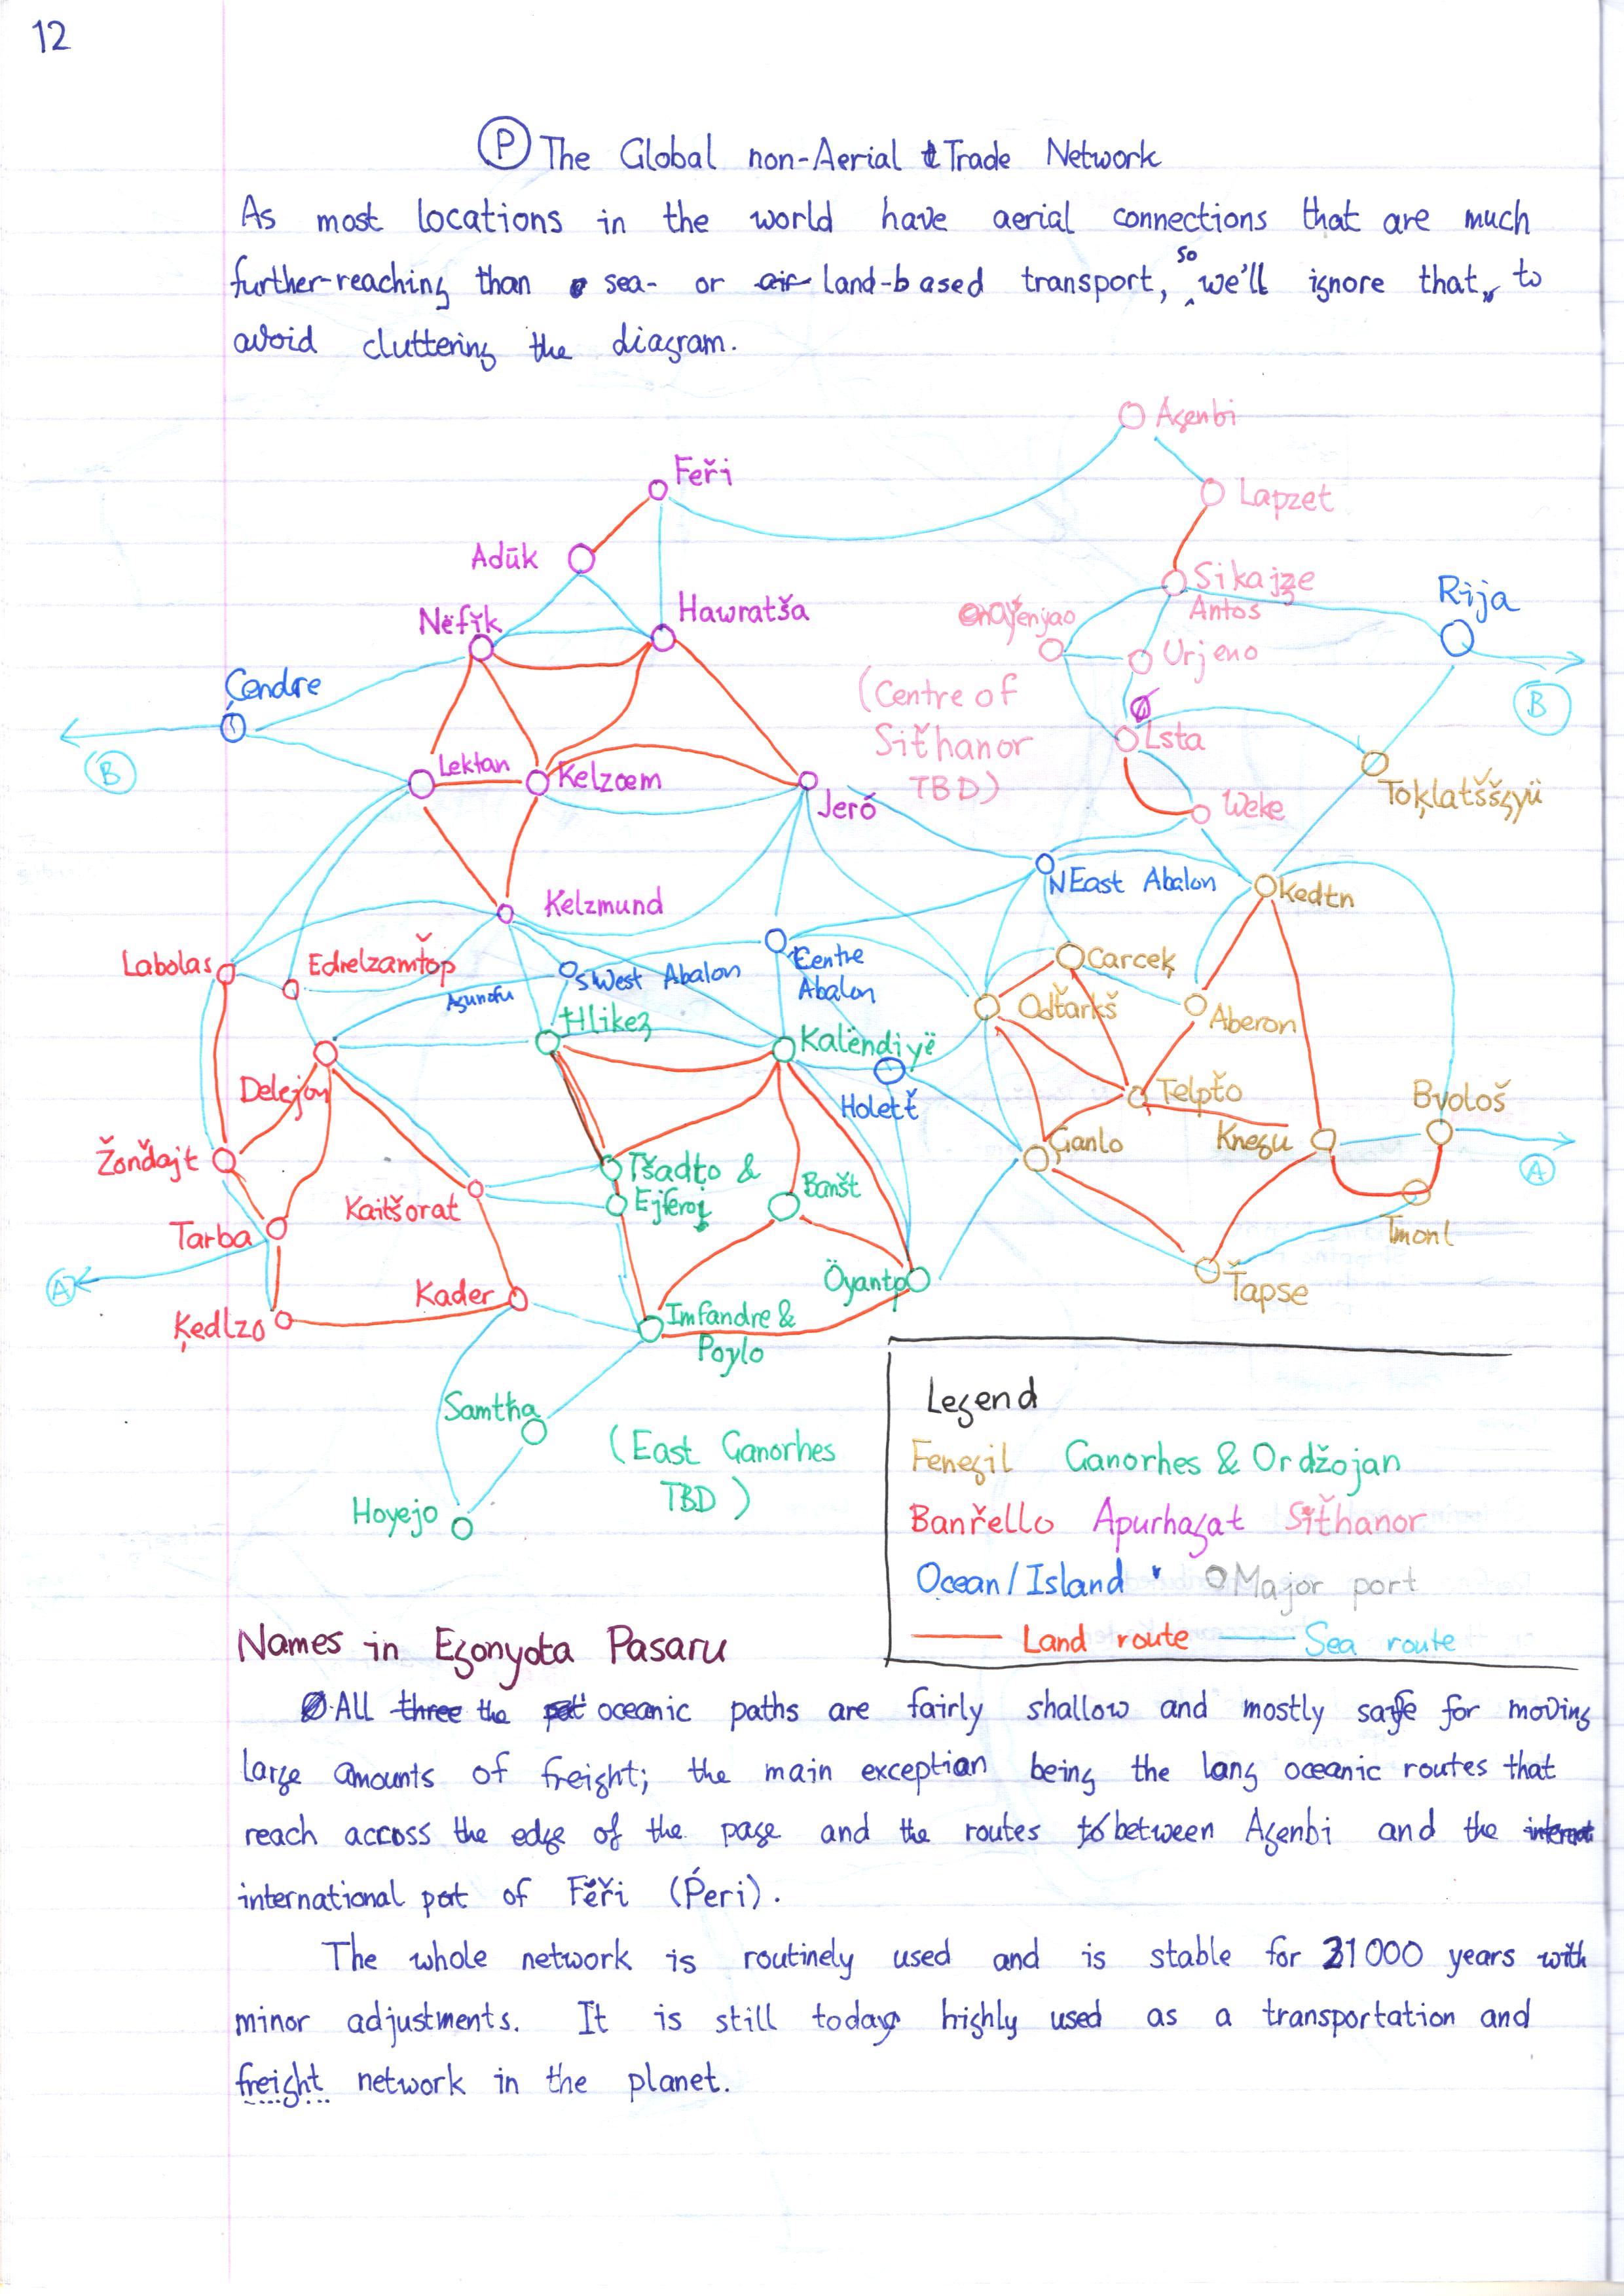 12
Ⓟ The Global non-Aerial Trade Network
As most locations in the world have aerial connections that are much
further-reaching than sea- or air land-based transport, so we'll ignore that, to
avoid cluttering the diagram.
Aȩenbi
Feři
Lapzet
Adūk
Sikajze
Antos
Rija
Hawratša
Nëfîk
Urjeno
Cendre
(Centre of
Siťhanor
TBD)
B
Lsta
B
Lektan
Kelzœm
Jeró
Weke
NEast Abalon
Kedtn
Kelzmund
Labolas
Edrelzamťop
SWest Abalon
Centre
Abalon
Carceķ
Odťarkš
Aberon
Hlikeȝ
Kalëndiyë
Delejon
Holetť
Telpťo
Bvološ
Žonďajt
Tšadţo &
Ejferoţ
Banšt
Ganlo
Knegu
A
Kaitšorat
Tarba
Tmonl
A
Kader
Öyanto
Ťapse
Ķedlzo
Imfandre &
Poylo
Samťha
(East Ganorhes
TBD)
Hoyejo
Legend
Fenegil Ganorhes & Ordžojan
Banřello Apurhagat Siťhanor
Ocean/Island Major port
Land route Sea route
Names in Egonyota Pasaru
All three the oceanic paths are fairly shallow and mostly safe for moving
large amounts of freight; the main exception being the long oceanic routes that
reach accoss the edge of the page and the routes between Agenbi and the
international port of Fëři (Ṕeri).
The whole network is routinely used and is stable for 21000 years with
minor adjustments. It is still today highly used as a transportation and
freight network in the planet.